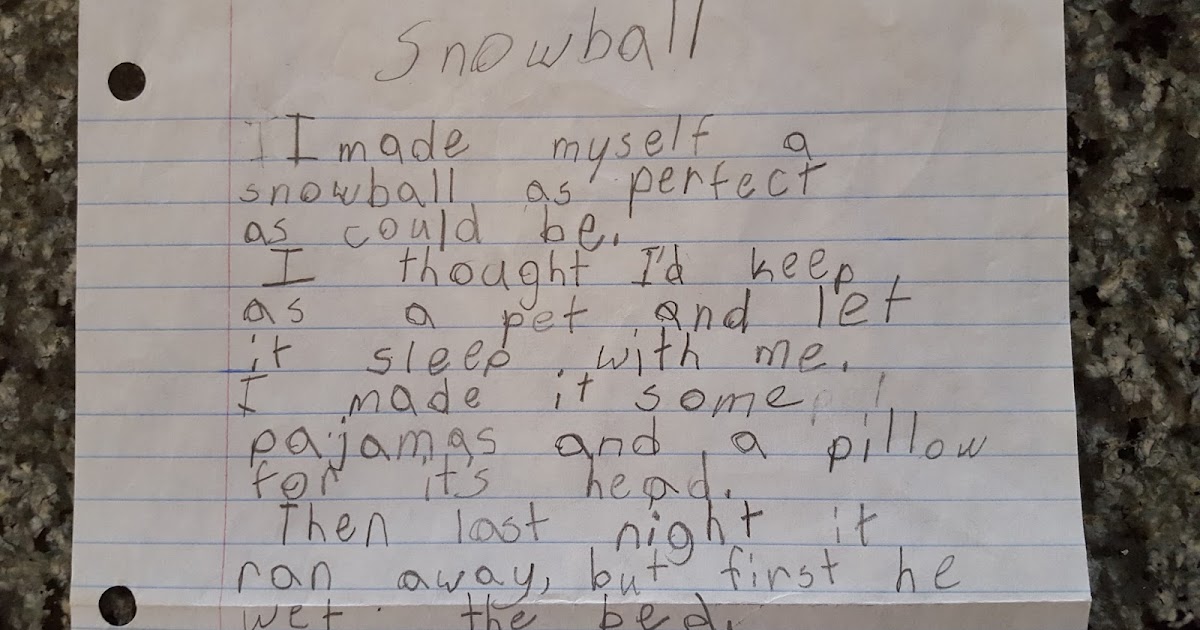 Snowball
I made myself a
snowball as perfect
as could be.
I thought I'd keep
as a pet and let
it sleep with me.
I made it some
pajamas and a pillow
for it's head.
Then last night it
ran away, but first he
wet the bed.